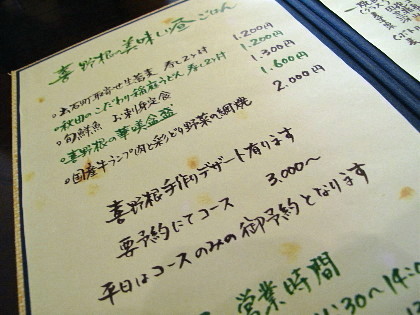 喜野根の美味しい昼ごはん
出石町取寄せ生蕎麦 寿し2ケ付 1.200円
秋田のこだわり稲庭うどん 寿し2ケ付 1.200円
旬鮮魚 お刺身定食 1.300円
喜野根の華咲金盛 1.600円
国産牛ランプ肉と彩どり野菜の網焼 2.000円
喜野根手作りデザート有ります
要予約にてコース 3,000〜
平日はコースのみの御予約となります
営業時間
:30〜14:0